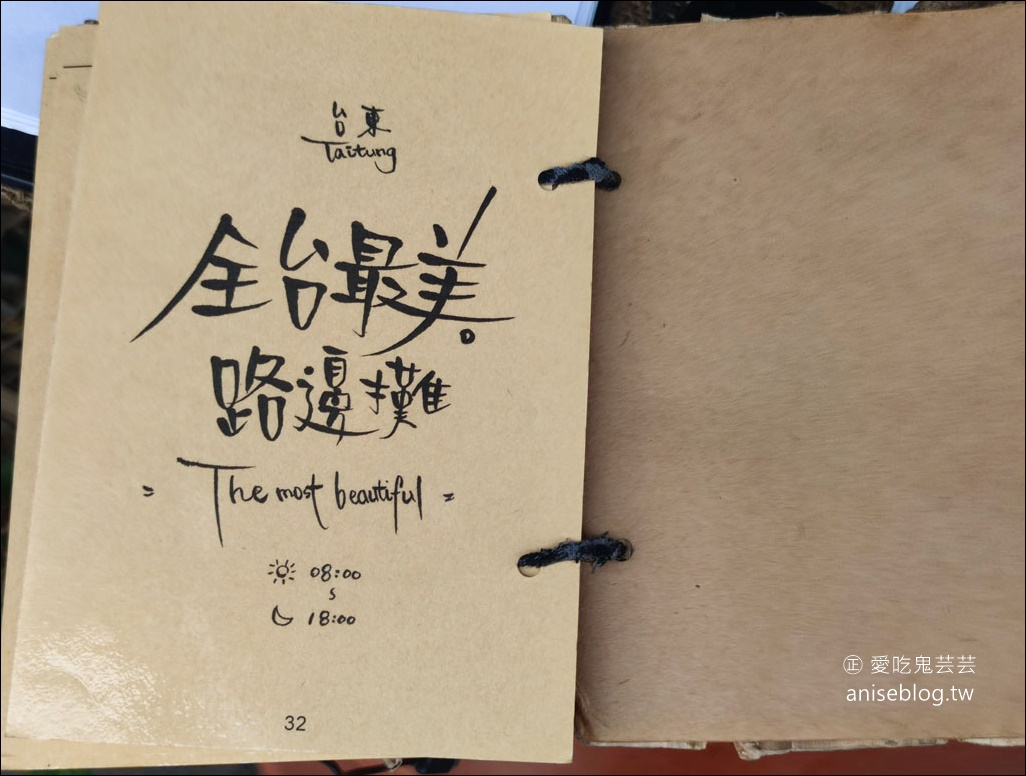 台東
Taitung
全台最美。
路邊攤
= The most beautiful =
08:00
~
18:00
32
㊣ 愛吃鬼芸芸
aniseblog.tw